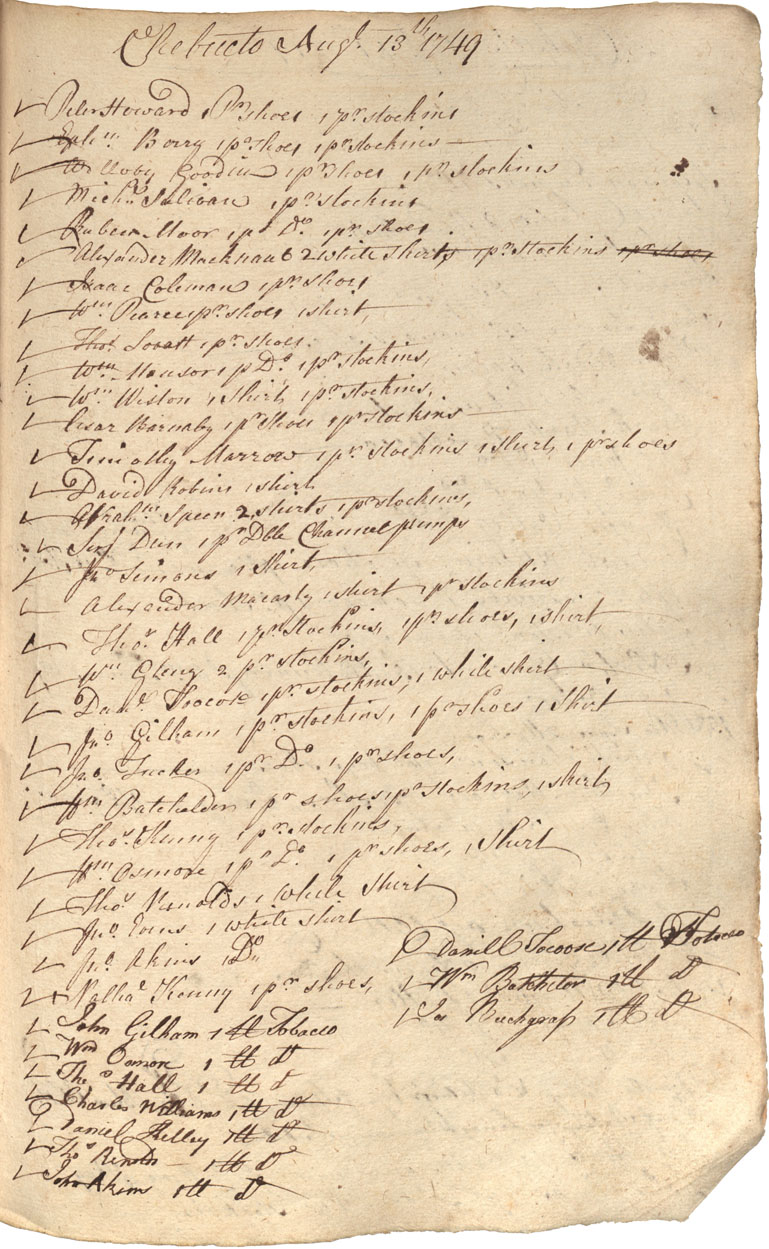 Chebucto Augt. 13th 1749
Peter Howard 1 Pr shoes 1 pr stockins
Ephm. Borry 1 pr shoes 1 pr stockins
Willoby Goodin 1 pr shoes 1 pr stockins
Michl. Sulivan 1 pr stockins
Rubeen Moor 1 pr Do 1 pr shoes
Alexander Macknaut 2 white shirts, 1 pr stockins 1 pr shoes
Isaac Coleman 1 pr shoes
Wm Pearce 1 pr shoes 1 shirt,
Thos. 1 pr shoes.
Wm Mansor 1 p Do 1 pr stockins,
Wm Wiston 1 Shirt, 1 pr stockins,
Cesar Barnaby 1 pr shoes 1 pr stockins
Timothy Marrow 1 pr stockins 1 shirt, 1 pr shoes
David Robins 1 shirt
Abrahm. Speen 2 shirts 1 pr stockins,
Dun 1 pr Dble Channel pumps
Jno Simons 1 Shirt,
Alexander Macarty 1 shirt 1 pr stockins
Thos. Hall 1 pr stockins, 1 pr shoes, 1 shirt,
Wm 2 pr stockins,
Danl. Tocose 1 pr stockins, 1 white shirt
Jno Gilham 1 pr stockins, 1 pr shoes 1 Shirt
Jno. Tucker 1 pr Do 1 pr shoes,
Wm Batchelder 1 pr shoes 1 pr stockins, 1 shirt,
Thos. Kenny 1 pr stockins,
Wm Osmore 1 pr Do. 1 pr shoes, 1 Shirt
Thos Renolds 1 White Shirt
Jno. Evins 1 white shirt
Jno. Akins 1 Do
Nathal. Kenny 1 pr shoes,
John Gilham 1 tt Tobacco
Wm Osmore 1 tt do
Thos Hall 1 tt do
Charles Williams 1 tt do
Daniel Kelley 1 tt do
Thos Renolds 1 tt do
John Akims 1 tt do
Daniell Tocoose 1 tt Tobacco
Wm Batchelor 1 tt do
Jos 1 tt do